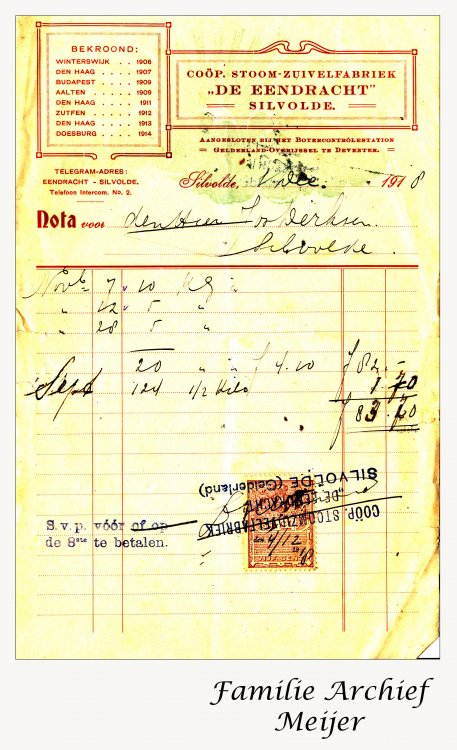 BEKROOND:
WINTERSWIJK . . 1906
DEN HAAG . . . . 1907
BUDAPEST . . . . 1909
AALTEN . . . . . 1909
DEN HAAG . . . . 1911
ZUTFEN . . . . . 1912
DEN HAAG . . . . 1913
DOESBURG . . . . 1914
TELEGRAM-ADRES:
EENDRACHT - SILVOLDE.
Telefoon Intercom. No. 2.
COÖP. STOOM-ZUIVELFABRIEK
„DE EENDRACHT”
SILVOLDE.
AANGESLOTEN BIJ HET BOTERCONTRÔLESTATION
GELDERLAND-OVERIJSSEL TE DEVENTER.
Silvolde, 1 Dec. 1918
Nota voor den Heer Derksen
Silvolde.
Novb 7 10 Kg
„ 12 5 „
„ 28 5 „
20 „ f 4.10 f 82.-
Sept 124 1/2 Kilo 1.70
f 83.70
COÖP. STOOM-ZUIVELFABRIEK
„DE EENDRACHT”
SILVOLDE (Gelderland)
4/12 18
S.v.p. vóór of op
de 8ste te betalen.
Familie Archief
Meijer